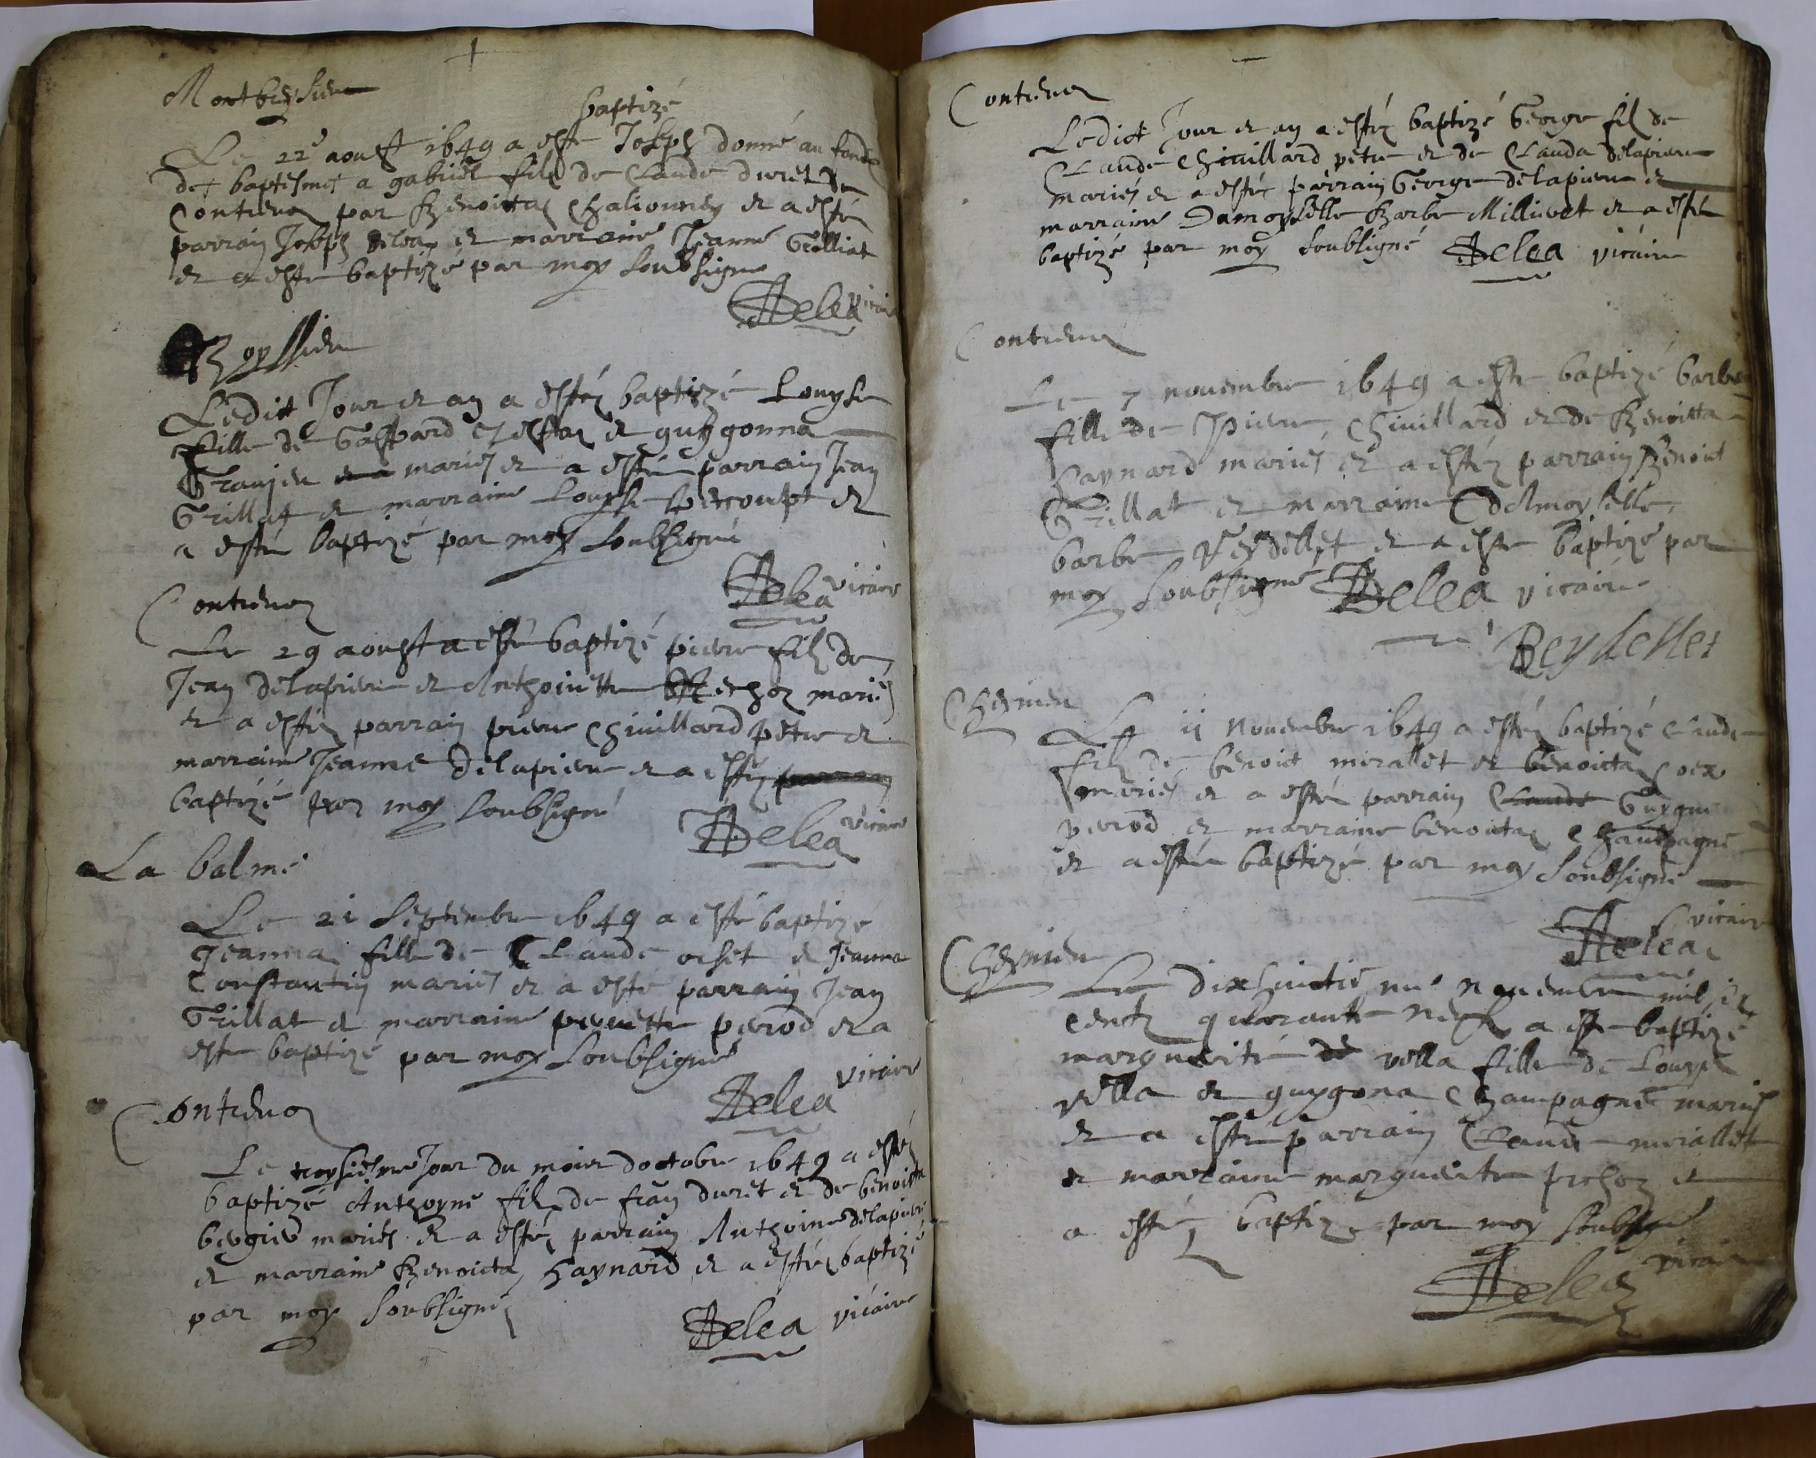 baptizé
Le 22e aoust 1649 a esté Joseph donné au fondz
de baptesme a gabriel filz de Claude duret de
Contrevoz par Benoitta et a esté
parrain Joseph et marraine Jeanne Trolliat
et a esté baptizé par moy soubsigné
Delea vicaire
Ledict Jour et an a esté baptizé Louyse
fille de Gaspard et guygonna
mariés et a esté parrain Jean
Trillat et marraine Louyse et
a esté baptizé par moy soubsigné
Delea vicaire
Contrevoz
Le 29 aoust a esté baptizé pierre filz de
Jean delapierre et Anthoinette mariés
et a esté parrain pierre Chivillard petre et
marraine Jeanne delapierre et a esté
baptizé par moy soubsigné
Delea vicaire
La balme
Le 21 Septembre 1649 a esté baptizé
Jeanna fille de Claude orset et Jeanna
Constantin mariés et a esté parrain Jean
Trillat et marraine pernette perrod et a
esté baptizé par moy soubsigné
Delea vicaire
Contrevoz
Le troysiesme Jour du moir doctobre 1649 a esté
baptizé Anthoyne filz de fran duret et de benoitta
mariés et a esté parrain Anthoine delapierre
et marraine Benoicta haynard et a esté baptizé
par moy soubsigné
Delea vicaire
Contrevoz
Ledict Jour et an a esté baptizé George filz de
Claude Chivillard petre et de Clauda delapierre
mariés et a esté parrain George delapierre et
marraine Damoyselle Barbe Millivet et a esté
baptizé par moy soubsigné Delea vicaire
Contrevoz
Le 7 novembre 1649 a esté baptizé barbe
fille de Pierre Chivillard et de Benoicta
haynard mariés et a esté parrain Benoict
Trillat et marraine
barbe et a esté baptizé par
moy soubsigné Delea vicaire
Beydellet
Cheynieu
Le 11 novembre 1649 a esté baptizé Claude
filz de benoict mirallet et benoicta
mariés et a esté parrain Claude
perrod et marraine benoicta Champagne
et a esté baptizé par moy soubsigné
Delea vicaire
Cheynieu
Le novembre mil six
centz quarante neuf a esté baptizé
marguerite de vella fille de Louys
vella et guygona Champagne mariés
et a esté parrain Claude mirallet
et marraine marguerite et
a esté baptizé par moy soubsigné
Delea vicaire